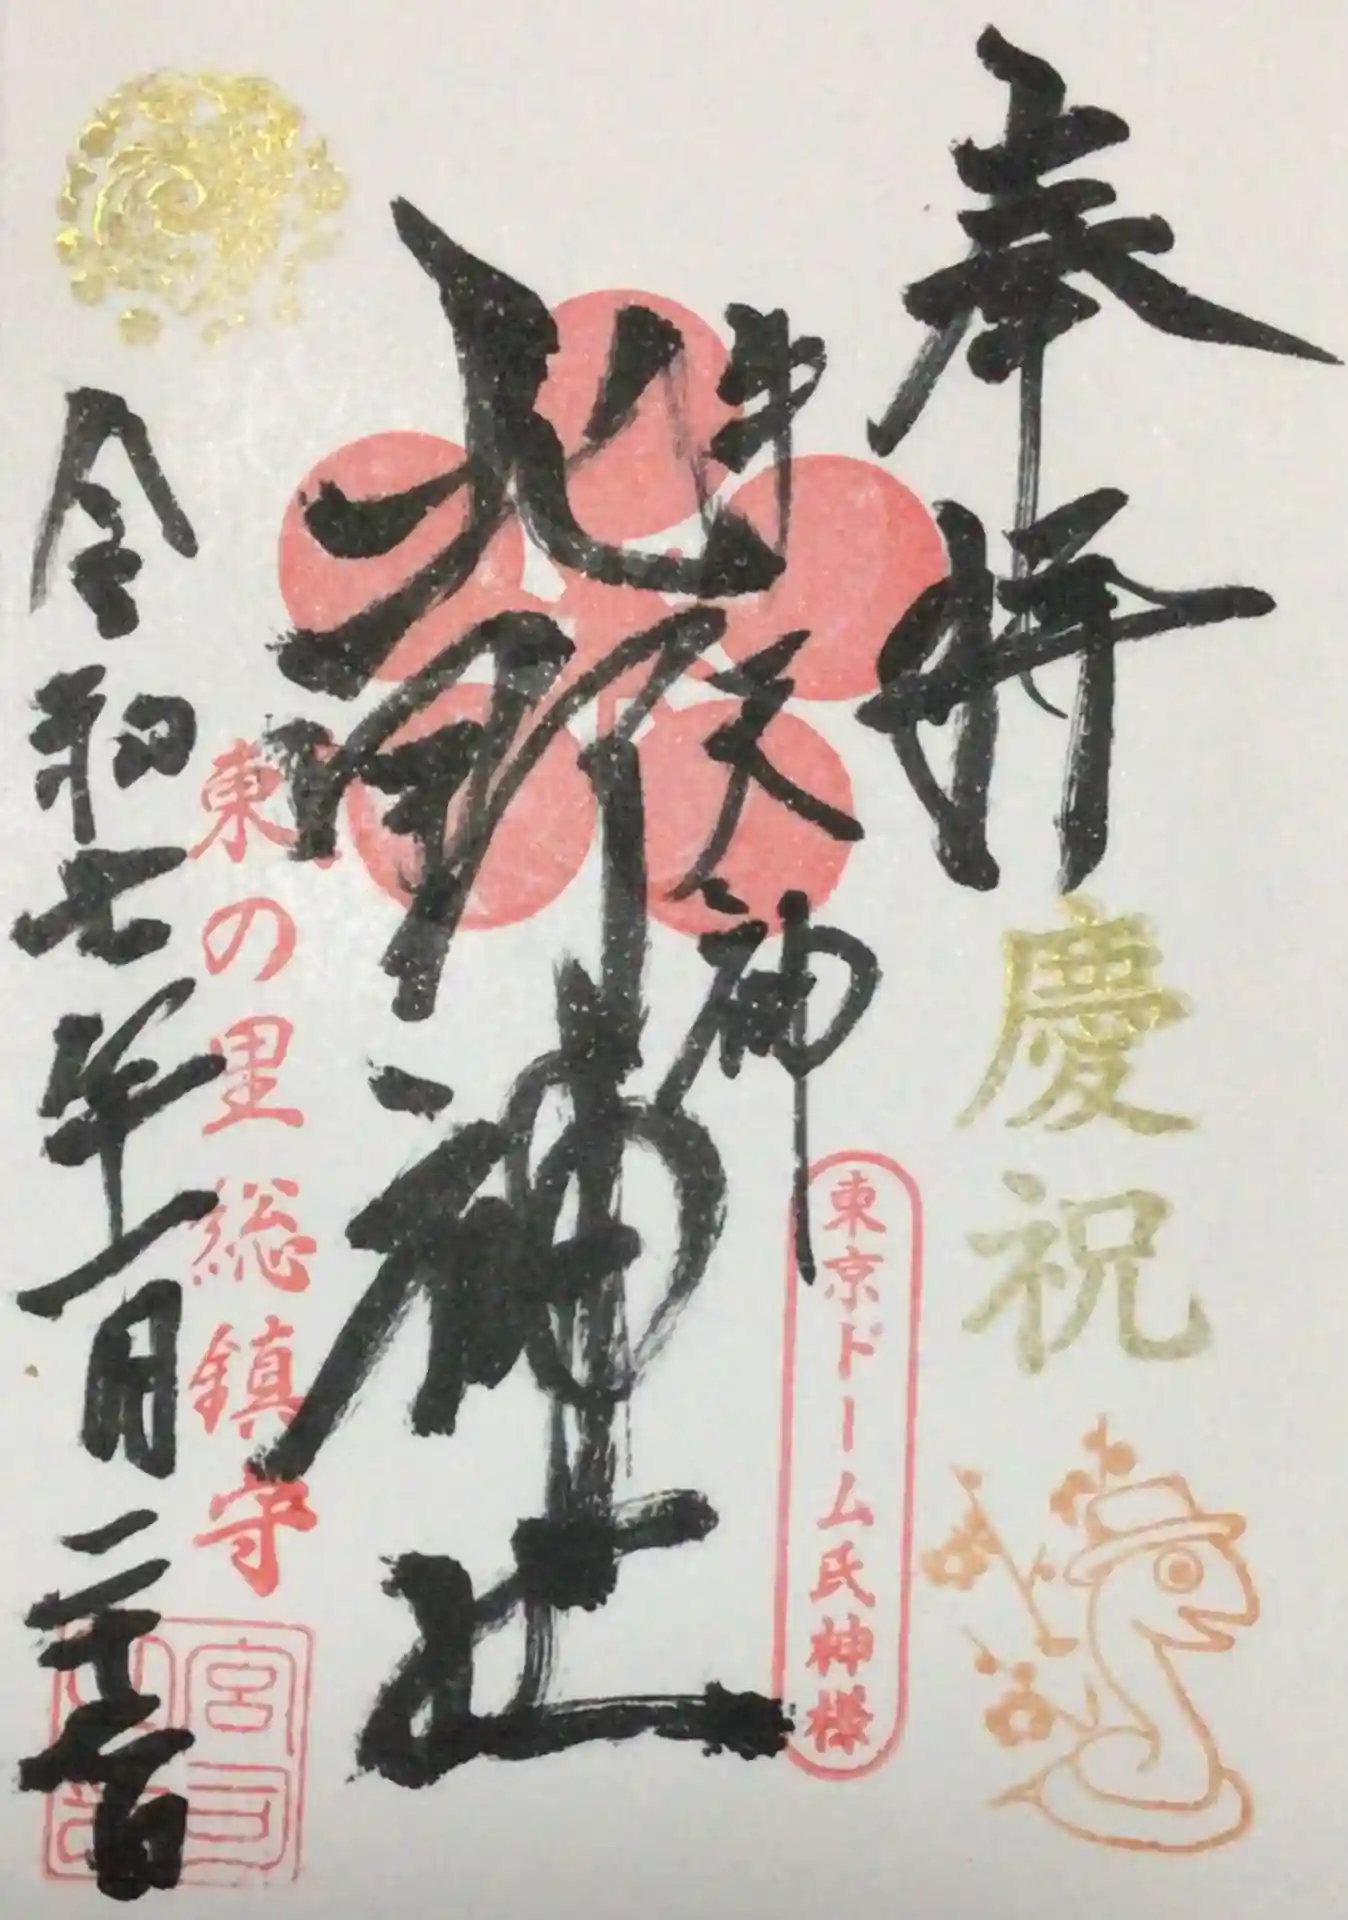 奉拝
慶祝
東京ドーム氏神様
牛天神
北野神社
東の里総鎮守
令和七年一月二十一日
宮司